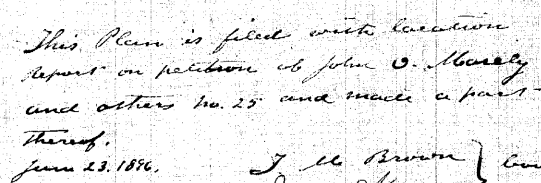 This Plan is filed with location
report on petition of John O. Mosely
and others no. 25 and made a part
thereof.
June 23. 1896. J M Brown }